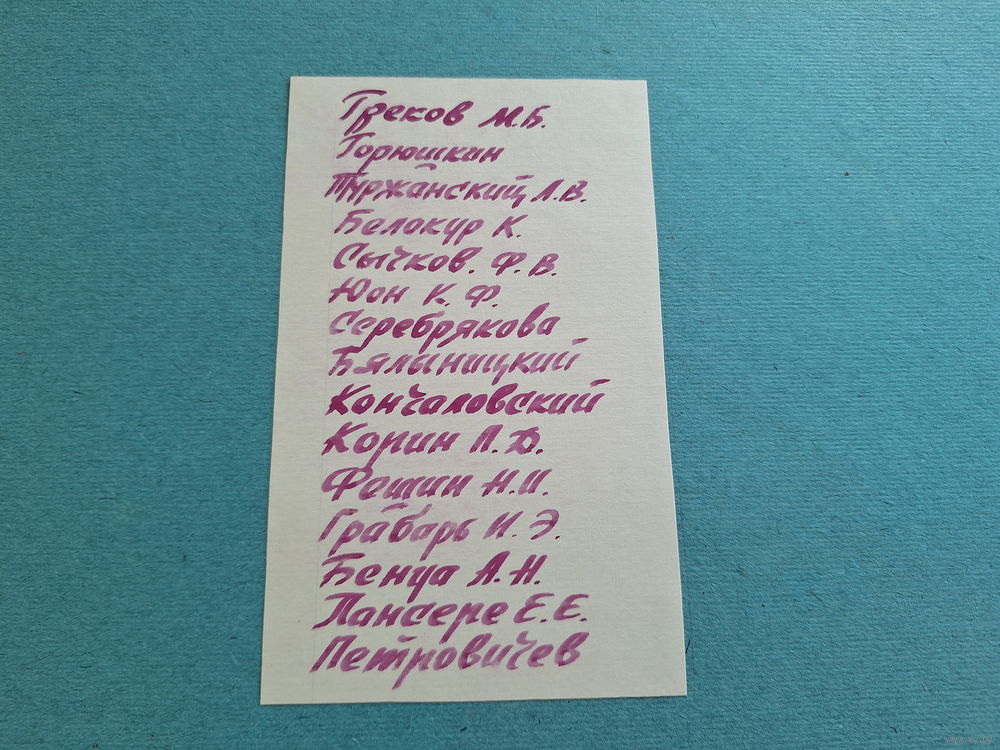 Греков М.Б.
Горюшкин
Туржанский Л.В.
Белокур К.
Сычков. Ф. В.
Юон К. Ф.
Серебрякова
Бялыницкий
Кончаловский
Корин П.Д.
Фешин Н.И.
Грабарь И. Э.
Бенуа А.Н.
Лансере Е.Е.
Петровичев